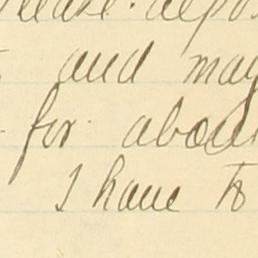 Please depo
and may
for about
I have to